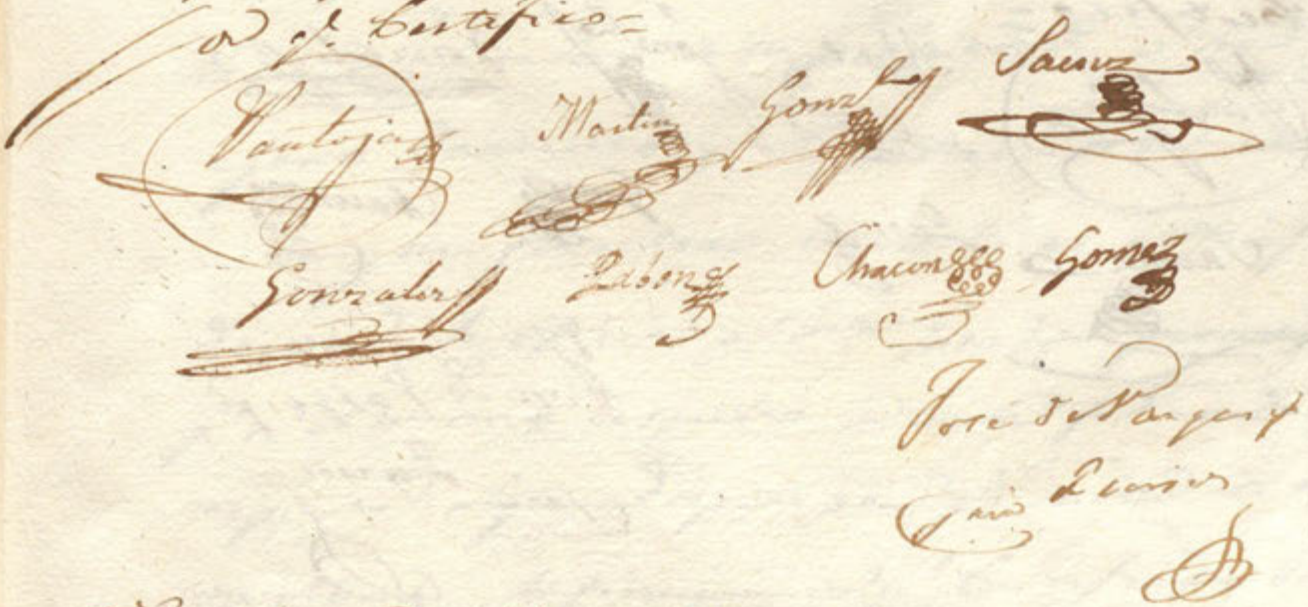 Certifico=
Pantoja Martin Gonz Saenz
Gonzalez Pabon Chacon Gomez
Jose de Vargas y